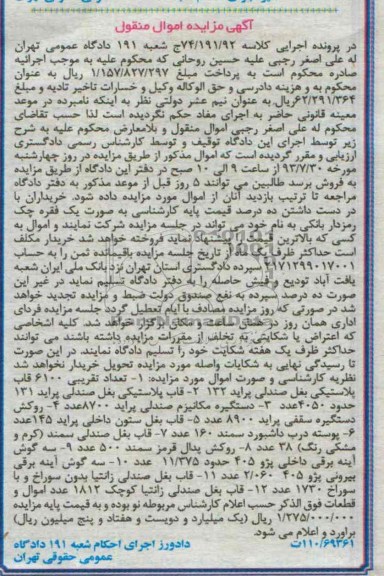 آگهی مزایده اموال منقول
در پرونده اجرایی کلاسه ۷۴/۱۹۱/۹۲ج شعبه ۱۹۱ دادگاه عمومی تهران
له علی اصغر رجبی علیه حسین روحانی که محکوم علیه به موجب اجرائیه
صادره محکوم است به پرداخت مبلغ ۱/۱۵۷/۸۲۷/۲۹۷ ریال به عنوان
محکوم به و هزینه دادرسی و حق الوکاله وکیل و خسارات تاخیر تادیه و مبلغ
۶۲/۲۹۱/۳۶۴ریال.به عنوان نیم عشر دولتی نظر به اینکه نامبرده در موعد
معینه قانونی حاضر به اجرای مفاد حکم نگردیده است لذا حسب تقاضای
محکوم له علی اصغر رجبی اموال منقول و بلامعارض محکوم علیه به شرح
زیر توسط اجرای این دادگاه توقیف و توسط کارشناس رسمی دادگستری
ارزیابی و مقرر گردیده است که اموال مذکور از طریق مزایده در روز چهارشنبه
مورخه ۹۳/۷/۳۰ از ساعت ۹ الی ۱۰ صبح در دفتر این دادگاه از طریق مزایده
به فروش برسد طالبین می توانند ۵ روز قبل از موعد مذکور به دفتر دادگاه
مراجعه تا ترتیب بازدید آنان از اموال مورد مزایده داده شود. خریداران با
در دست داشتن ده درصد قیمت پایه کارشناسی به صورت یک فقره چک
رمزدار بانکی به نام خود می تواند در جلسه مزایده شرکت نمایند و اموال به
کسی که بالاترین قیمت را پیشنهاد نماید فروخته خواهد شد خریدار مکلف
است حداکثر ظرف یک ماه از تاریخ جلسه مزایده باقیمانده ثمن را به حساب
۲۱۷۱۲۹۹۰۱۷۰۰۱ سپرده دادگستری استان تهران نزد بانک ملی ایران شعبه
یافت آباد تودیع و فیش حاصله را به دفتر دادگاه تسلیم نماید در غیر این
صورت ده درصد سپرده به نفع صندوق دولت ضبط و مزایده تجدید خواهد
شد در صورتی که روز مزایده مصادف با ایام تعطیل گردد جلسه مزایده فردای
اداری همان روز در همان ساعت و مکان برگزار خواهد شد. کلیه اشخاصی
که اعتراض یا شکایتی به تخلف از مقررات مزایده داشته باشند می توانند
حداکثر ظرف یک هفته شکایت خود را تسلیم دادگاه نمایند. در این صورت
تا رسیدگی نهایی به شکایات واصله مورد مزایده تحویل خریدار نخواهد شد
نظریه کارشناسی و صورت اموال مورد مزایده: ۱- تعداد تقریبی ۶۱۰۰ قاب
پلاستیکی بغل صندلی پراید ۱۳۲ ۲- قاب پلاستیکی بغل صندلی پراید ۱۳۱
حدود ۴۰۵۰عدد ۳- دستگیره مکانیزم صندلی پراید ۸۷۰۰عدد ۴- روکش
دستگیره سقفی پراید ۸۹۰۰ عدد ۵- قاب بغل ستون داخلی پراید ۱۴۵عدد
۶- پوسته درب داشبورد سمند ۱۶۰ عدد ۷- قاب بغل صندلی سمند (کرم و
مشکی رنگ) ۳۸ عدد ۸- روکش پدال قرمز سمند ۵۰۰ عدد ۹- سه گوش
آینه برقی داخلی پژو ۴۰۵ حدود ۱۱/۳۷۵ عدد ۱۰- سه گوش آینه برقی
بیرونی پژو ۴۰۵ ۲/۰۶۰ عدد ۱۱- قاب بغل صندلی زانتیا بدون سوراخ و با
سوراخ ۱۷۳۰ عدد ۱۲- قاب بغل صندلی زانتیا کوچک ۱۸۱۲ عدد اموال و
قطعات فوق الذکر حسب اعلام کارشناس مربوطه نو بوده و به قیمت پایه مزایده
۱/۲۷۵/۰۰۰/۰۰۰ ریال (یک میلیارد و دویست و هفتاد و پنج میلیون ریال)
برآورد و اعلام می شود.
۱۱۰/۶۹۳۶۱ت
دادورز اجرای احکام شعبه ۱۹۱ دادگاه
عمومی حقوقی تهران